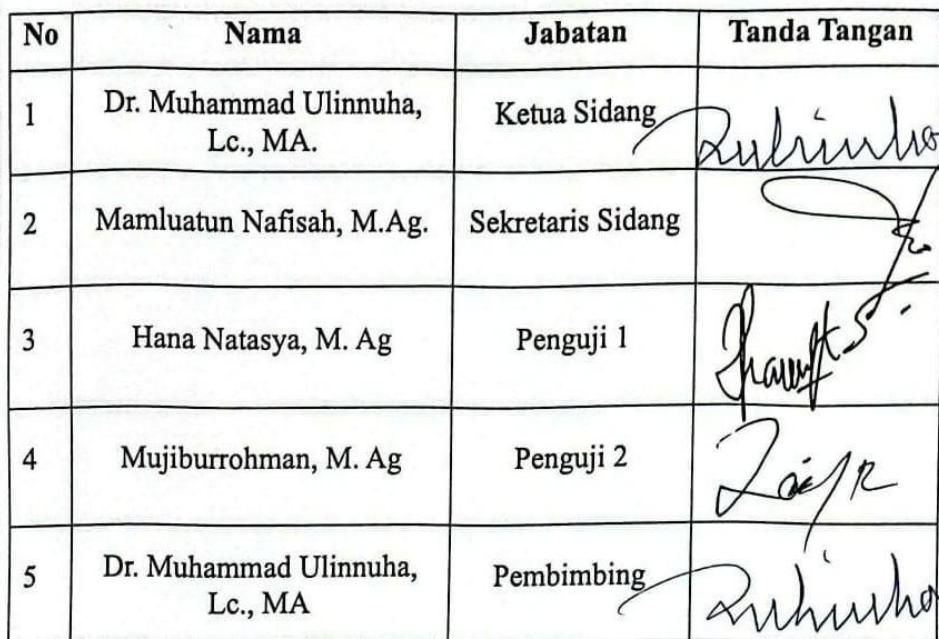 No Nama Jabatan Tanda Tangan
1 Dr. Muhammad Ulinnuha, Ketua Sidang
Lc., MA.
2 Mamluatun Nafisah, M.Ag. Sekretaris Sidang
3 Hana Natasya, M. Ag Penguji 1
4 Mujiburrohman, M. Ag Penguji 2
5 Dr. Muhammad Ulinnuha, Pembimbing
Lc., MA